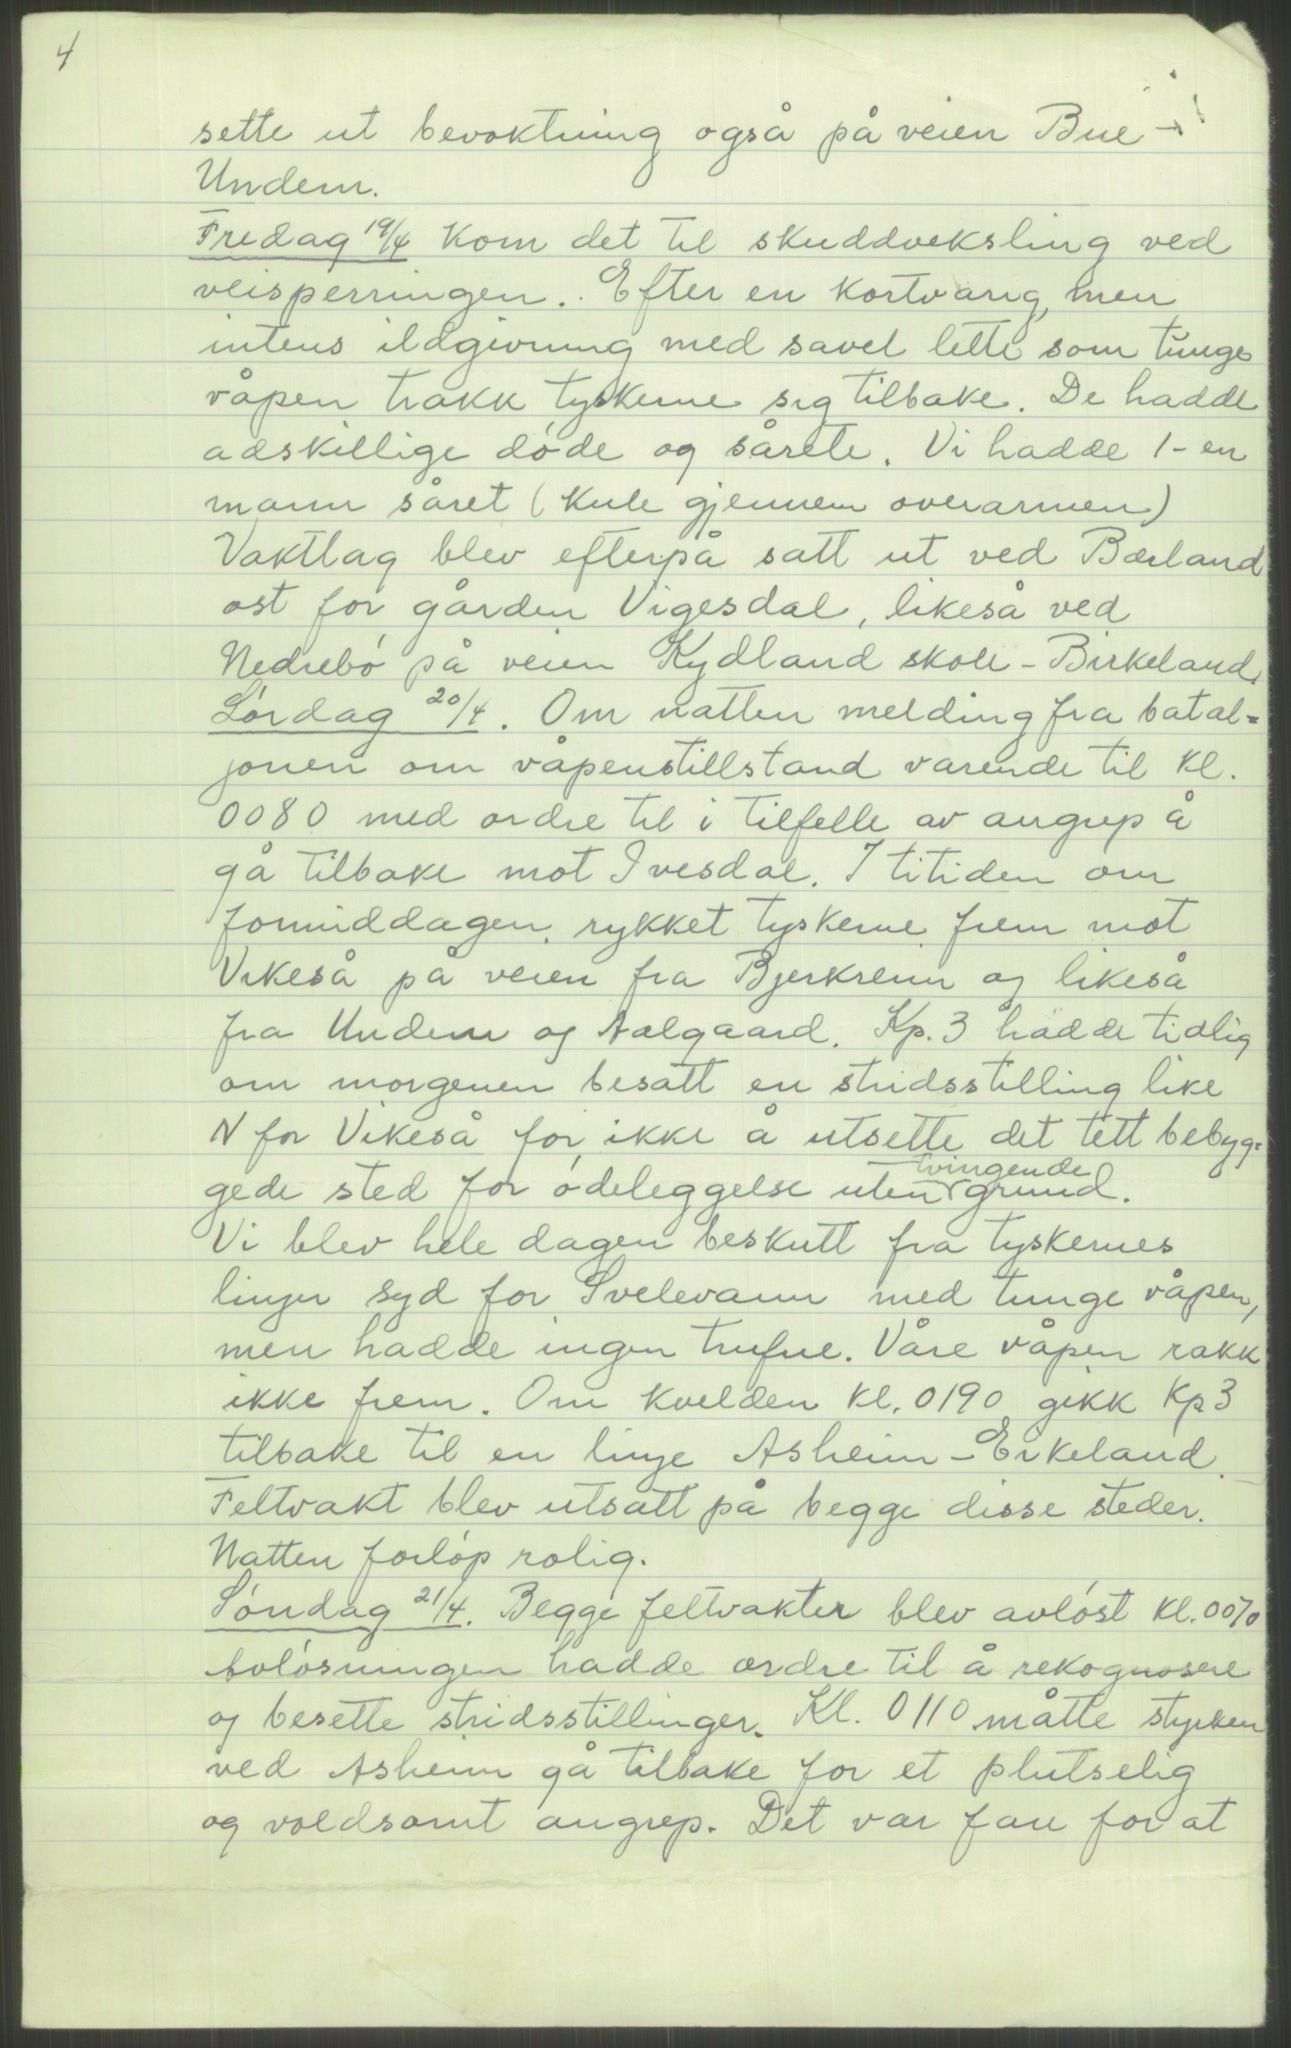 4
sette ut bevoktning også på veien Bue -
Undem.
Fredag 19/4 kom det til skuddveksling ved
veisperringen. Efter en kortvarig, men
intens ildgivning med savel lette som tunge
våpen trakk tyskerne sig tilbake. De hadde
adskillige døde og sårete. Vi hadde 1 - en
mann såret (kule gjennem overarmen)
Vaktlag blev efterpå satt ut ved Bærland
øst for gården Vigesdal, likeså ved
Nedrebø på veien Kydland skole - Birkeland.
Lørdag 20/4. Om natten melding fra batal=
jonen om våpenstillstand varende til kl.
0080 med ordre til i tilfelle av angrep å
gå tilbake mot Ivesdal. I titiden om
formiddagen rykket tyskerne frem mot
Vikeså på veien fra Bjerkreim og likeså
fra Undem og Aalgaard. Kp. 3 hadde tidlig
om morgenen besatt en stridsstilling like
N for Vikeså for ikke å utsette det tett bebyg=
gede sted for ødeleggelse uten tvingende grund.
Vi blev hele dagen beskutt fra tyskernes
linjer syd for Svelevann med tunge våpen,
men hadde ingen trufne. Våre våpen rakk
ikke frem. Om kvelden kl. 0190 gikk Kp 3
tilbake til en linje Asheim - Eikeland.
Feltvakt blev utsatt på begge disse steder.
Natten forløp rolig.
Søndag 21/4. Begge feltvakter blev avløst kl. 0070
Avløsningen hadde ordre til å rekognosere
og besette stridsstillinger. Kl. 0110 måtte styrken
ved Asheim gå tilbake for et plutselig
og voldsomt angrep. Det var fare for at